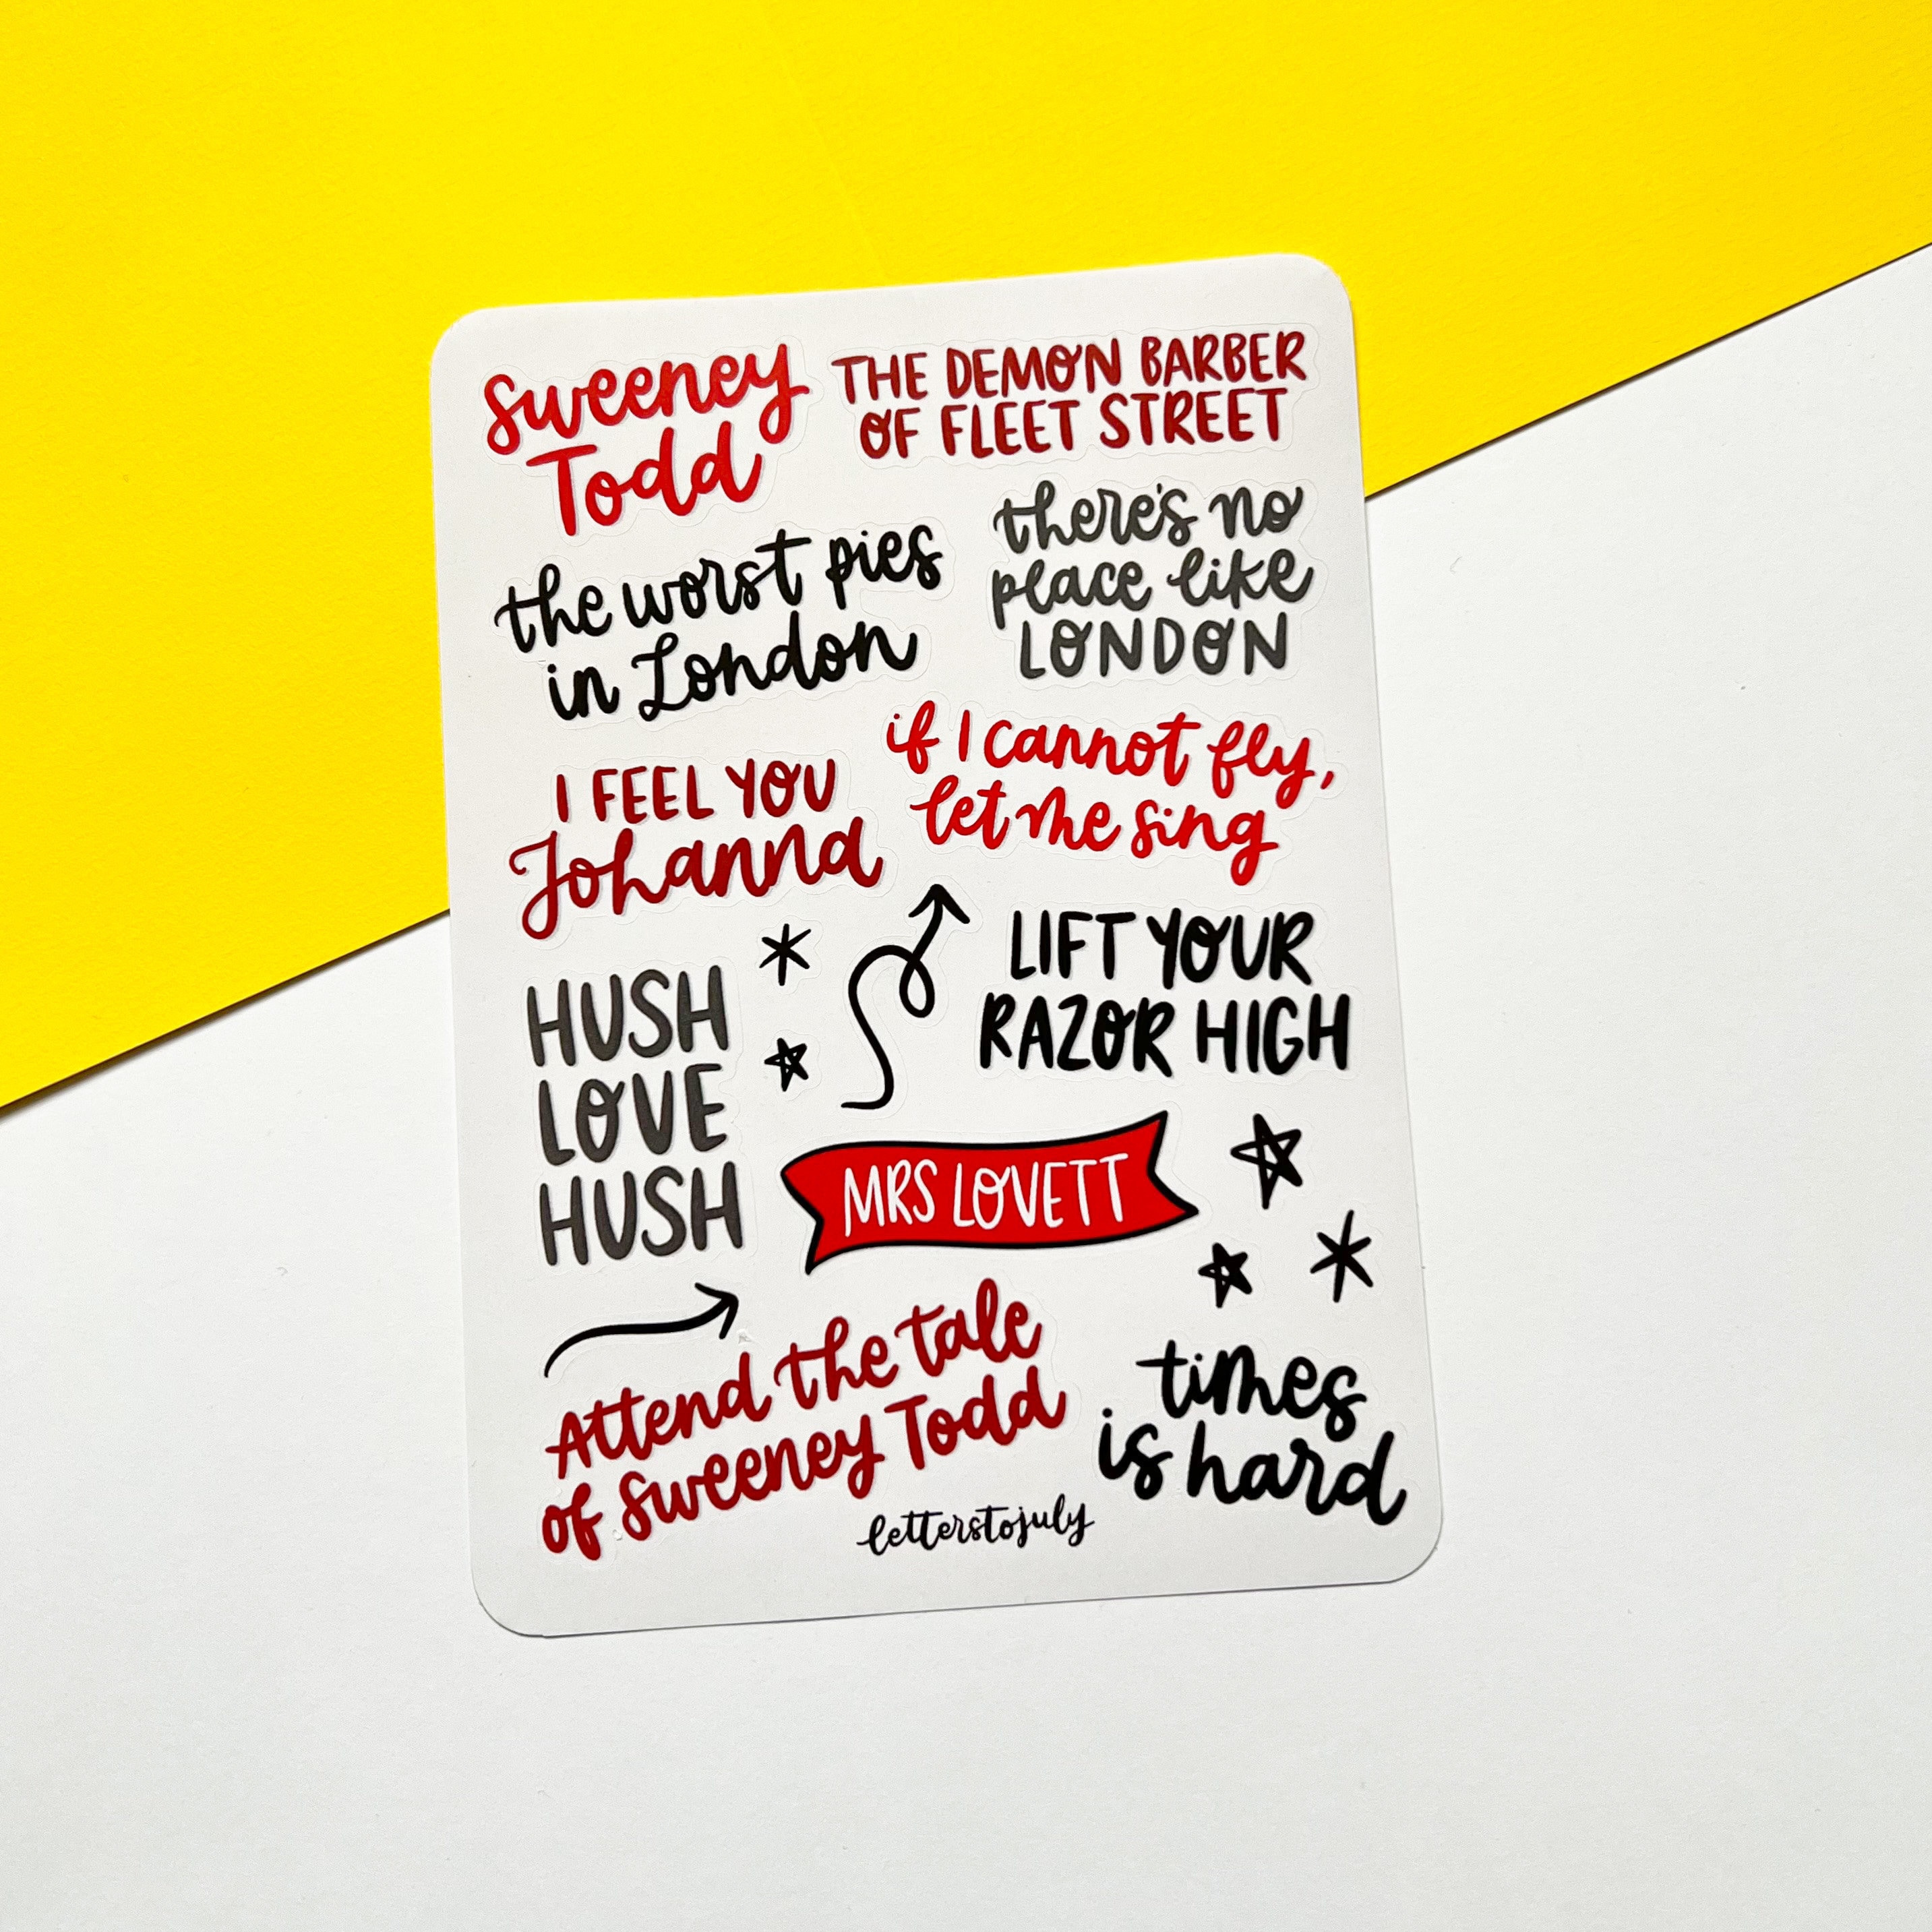 sweeney
Todd
THE DEMON BARBER
OF FLEET STREET
the worst pies
in London
there's no
place like
LONDON
I FEEL YOU
Johanna
if I cannot fly,
let me sing
HUSH
LOVE
HUSH
LIFT YOUR
RAZOR HIGH
MRS LOVETT
Attend the tale
of Sweeney Todd
times
is hard
letterstojuly